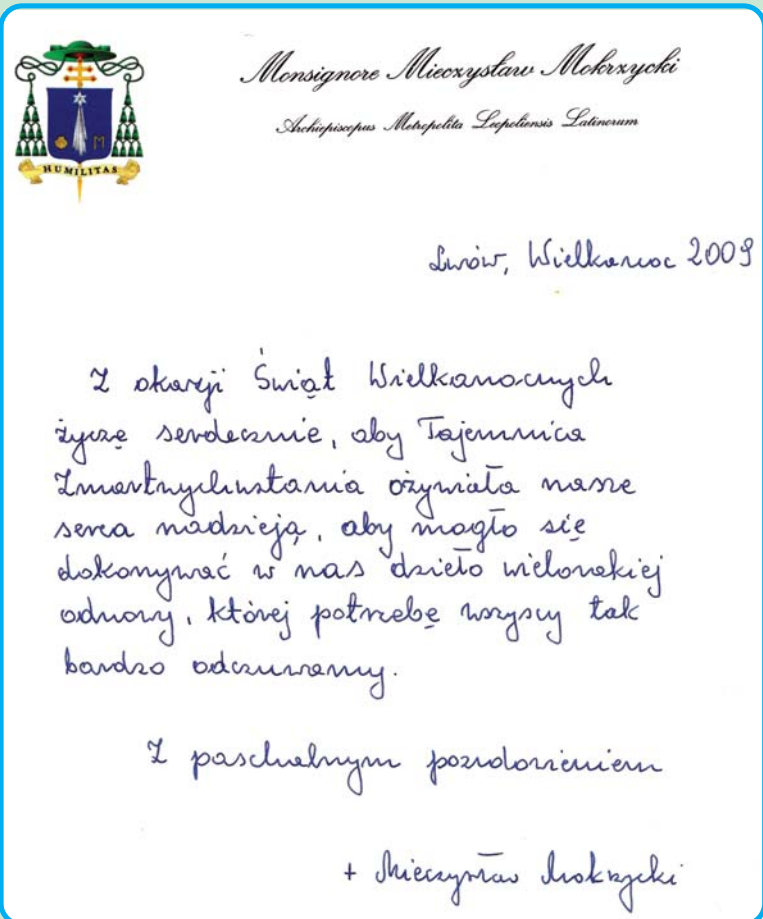 Monsignore Mieczysław Mokrzycki
Archiepiscopus Metropolita Leopoliensis Latinorum
HUMILITAS
M
Lwów, Wielkanoc 2009
Z okazji Świąt Wielkanocnych
życzę serdecznie, aby Tajemnica
Zmartwychwstania ożywiała nasze
serca nadzieją, aby mogło się
dokonywać w nas dzieło wielorakiej
odnowy, której potrzebę wszyscy tak
bardzo odczuwamy.
Z paschalnym pozdrowieniem
+ Mieczysław Mokrzycki